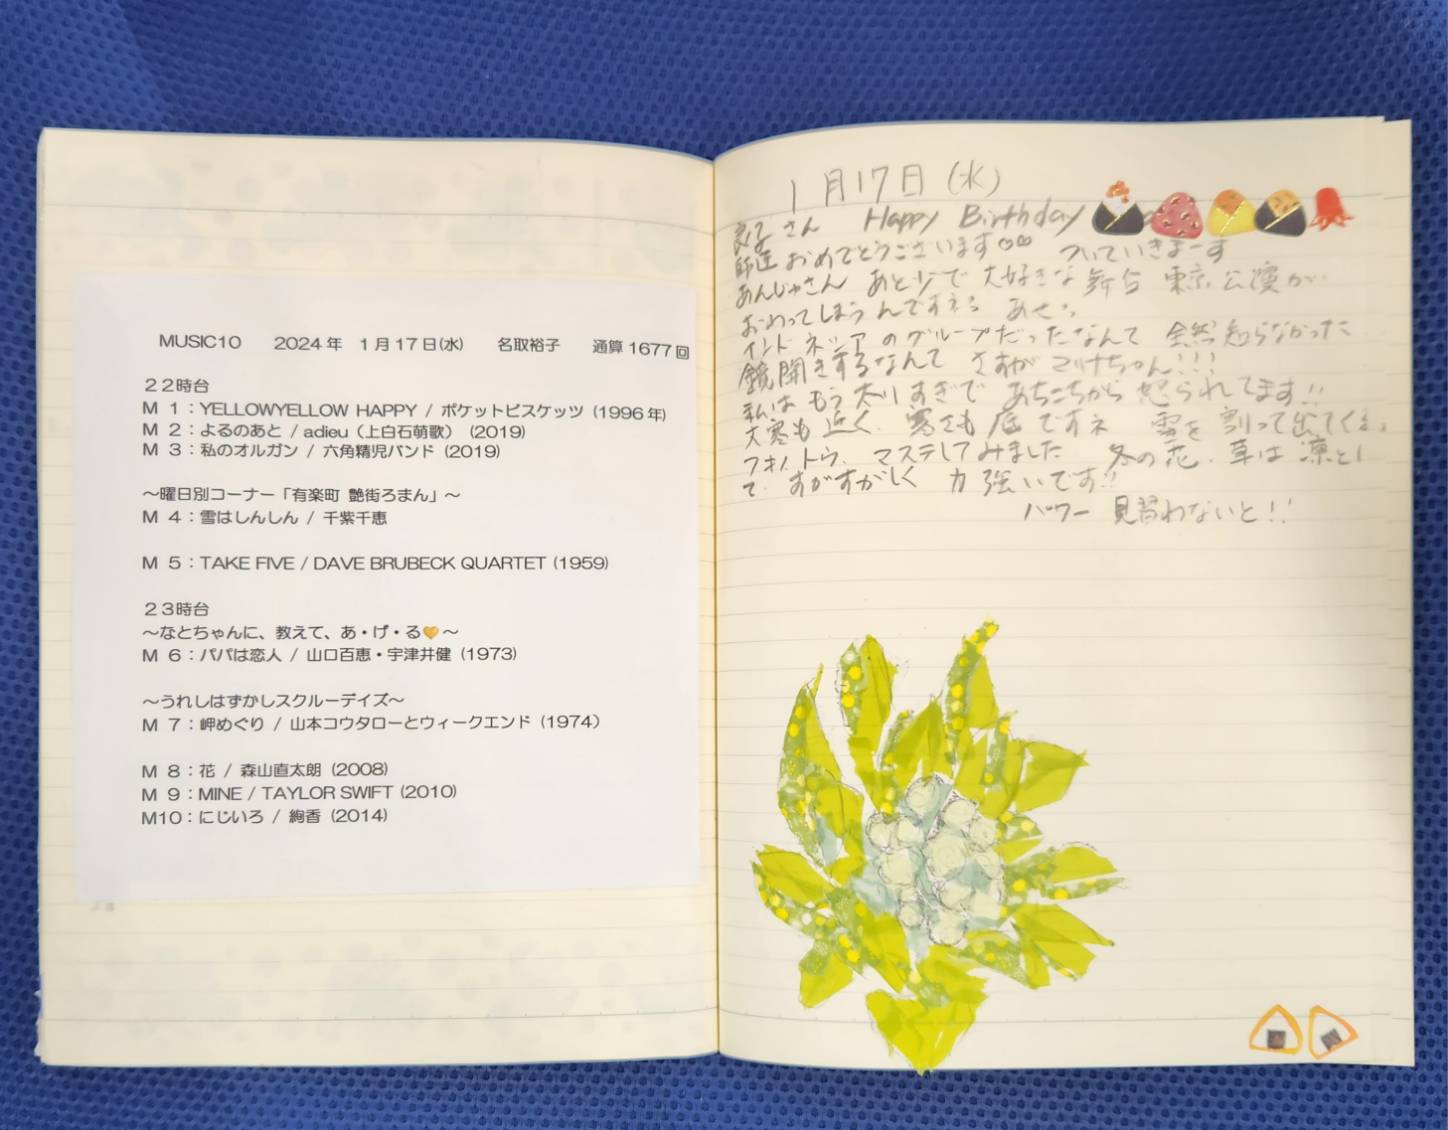 MUSIC10 2024年 1月17日(水) 名取裕子 通算1677回
22時台
M 1：YELLOWYELLOW HAPPY / ポケットビスケッツ (1996年)
M 2：よるのあと / adieu（上白石萌歌） (2019)
M 3：私のオルガン / 六角精児バンド (2019)
～曜日別コーナー「有楽町 艶街ろまん」～
M 4：雪はしんしん / 千紫千恵
M 5：TAKE FIVE / DAVE BRUBECK QUARTET (1959)
23時台
～なとちゃんに、教えて、あ・げ・る🧡～
M 6：パパは恋人 / 山口百恵・宇津井健 (1973)
～うれしはずかしスクルーデイズ～
M 7：岬めぐり / 山本コウタローとウィークエンド (1974)
M 8：花 / 森山直太朗 (2008)
M 9：MINE / TAYLOR SWIFT (2010)
M10：にじいろ / 絢香 (2014)
1月17日(水)
良子さん Happy Birthday
師匠おめでとうございます♡♡ ついていきまーす
あんじゅさん あと少で大好きな舞台 東京公演が
おわってしまうんですネ
インドネシアのグループだったなんて 全然知らなかった
鏡開きするなんて さすが マリナちゃん!!!
私はもう太りすぎで あちこちから怒られてます!!
大寒も近く、寒さも底ですネ 雪を割って出てくる
フキノトウ、マステしてみました 冬の花、草は凛とし
て、すがすがしく 力強いです!!
パワー 見習わないと!!